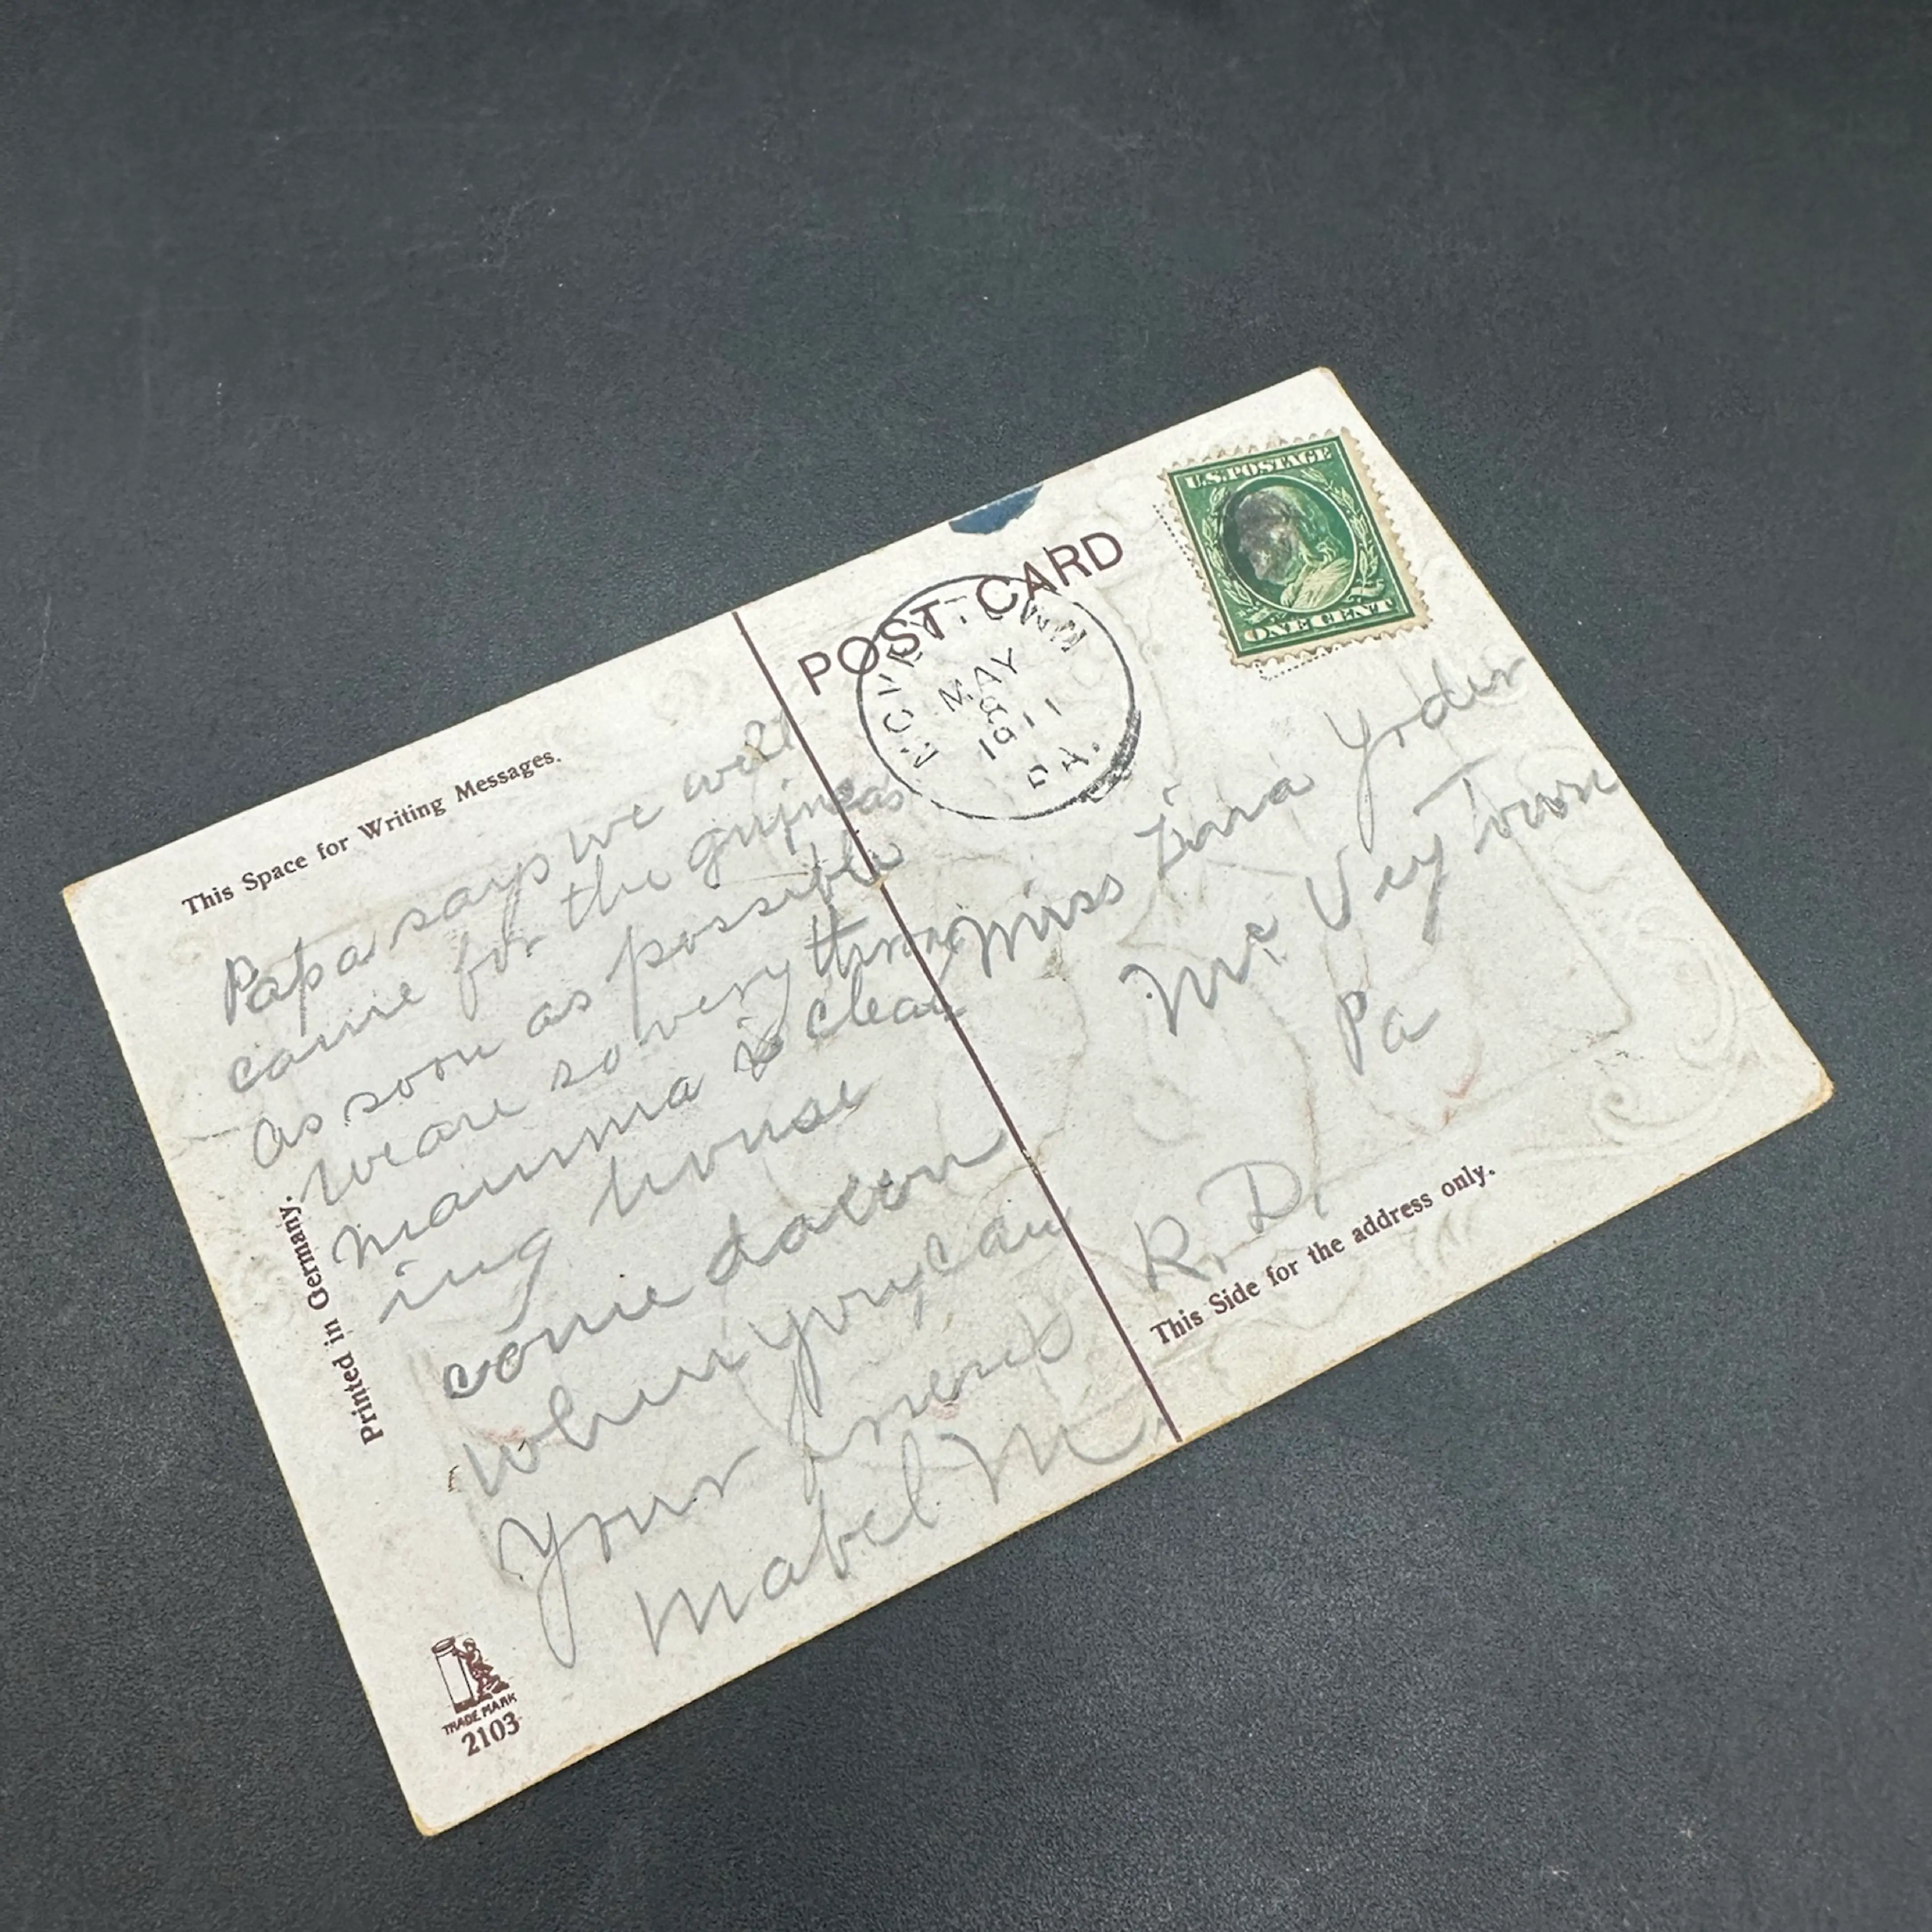 This Space for Writing Messages.
POST CARD
U.S. POSTAGE
ONE CENT
MCVEYTOWN
MAY
8
1911
PA.
Papa says we will
come for the guineas
as soon as possible
we are so very
mamma is clean
ing house
come down
when you can
Your friend
Mabel M.
Miss Yoder
Mc Vey Town
Pa
R. D.
This Side for the address only.
Printed in Germany.
TRADE MARK
2103